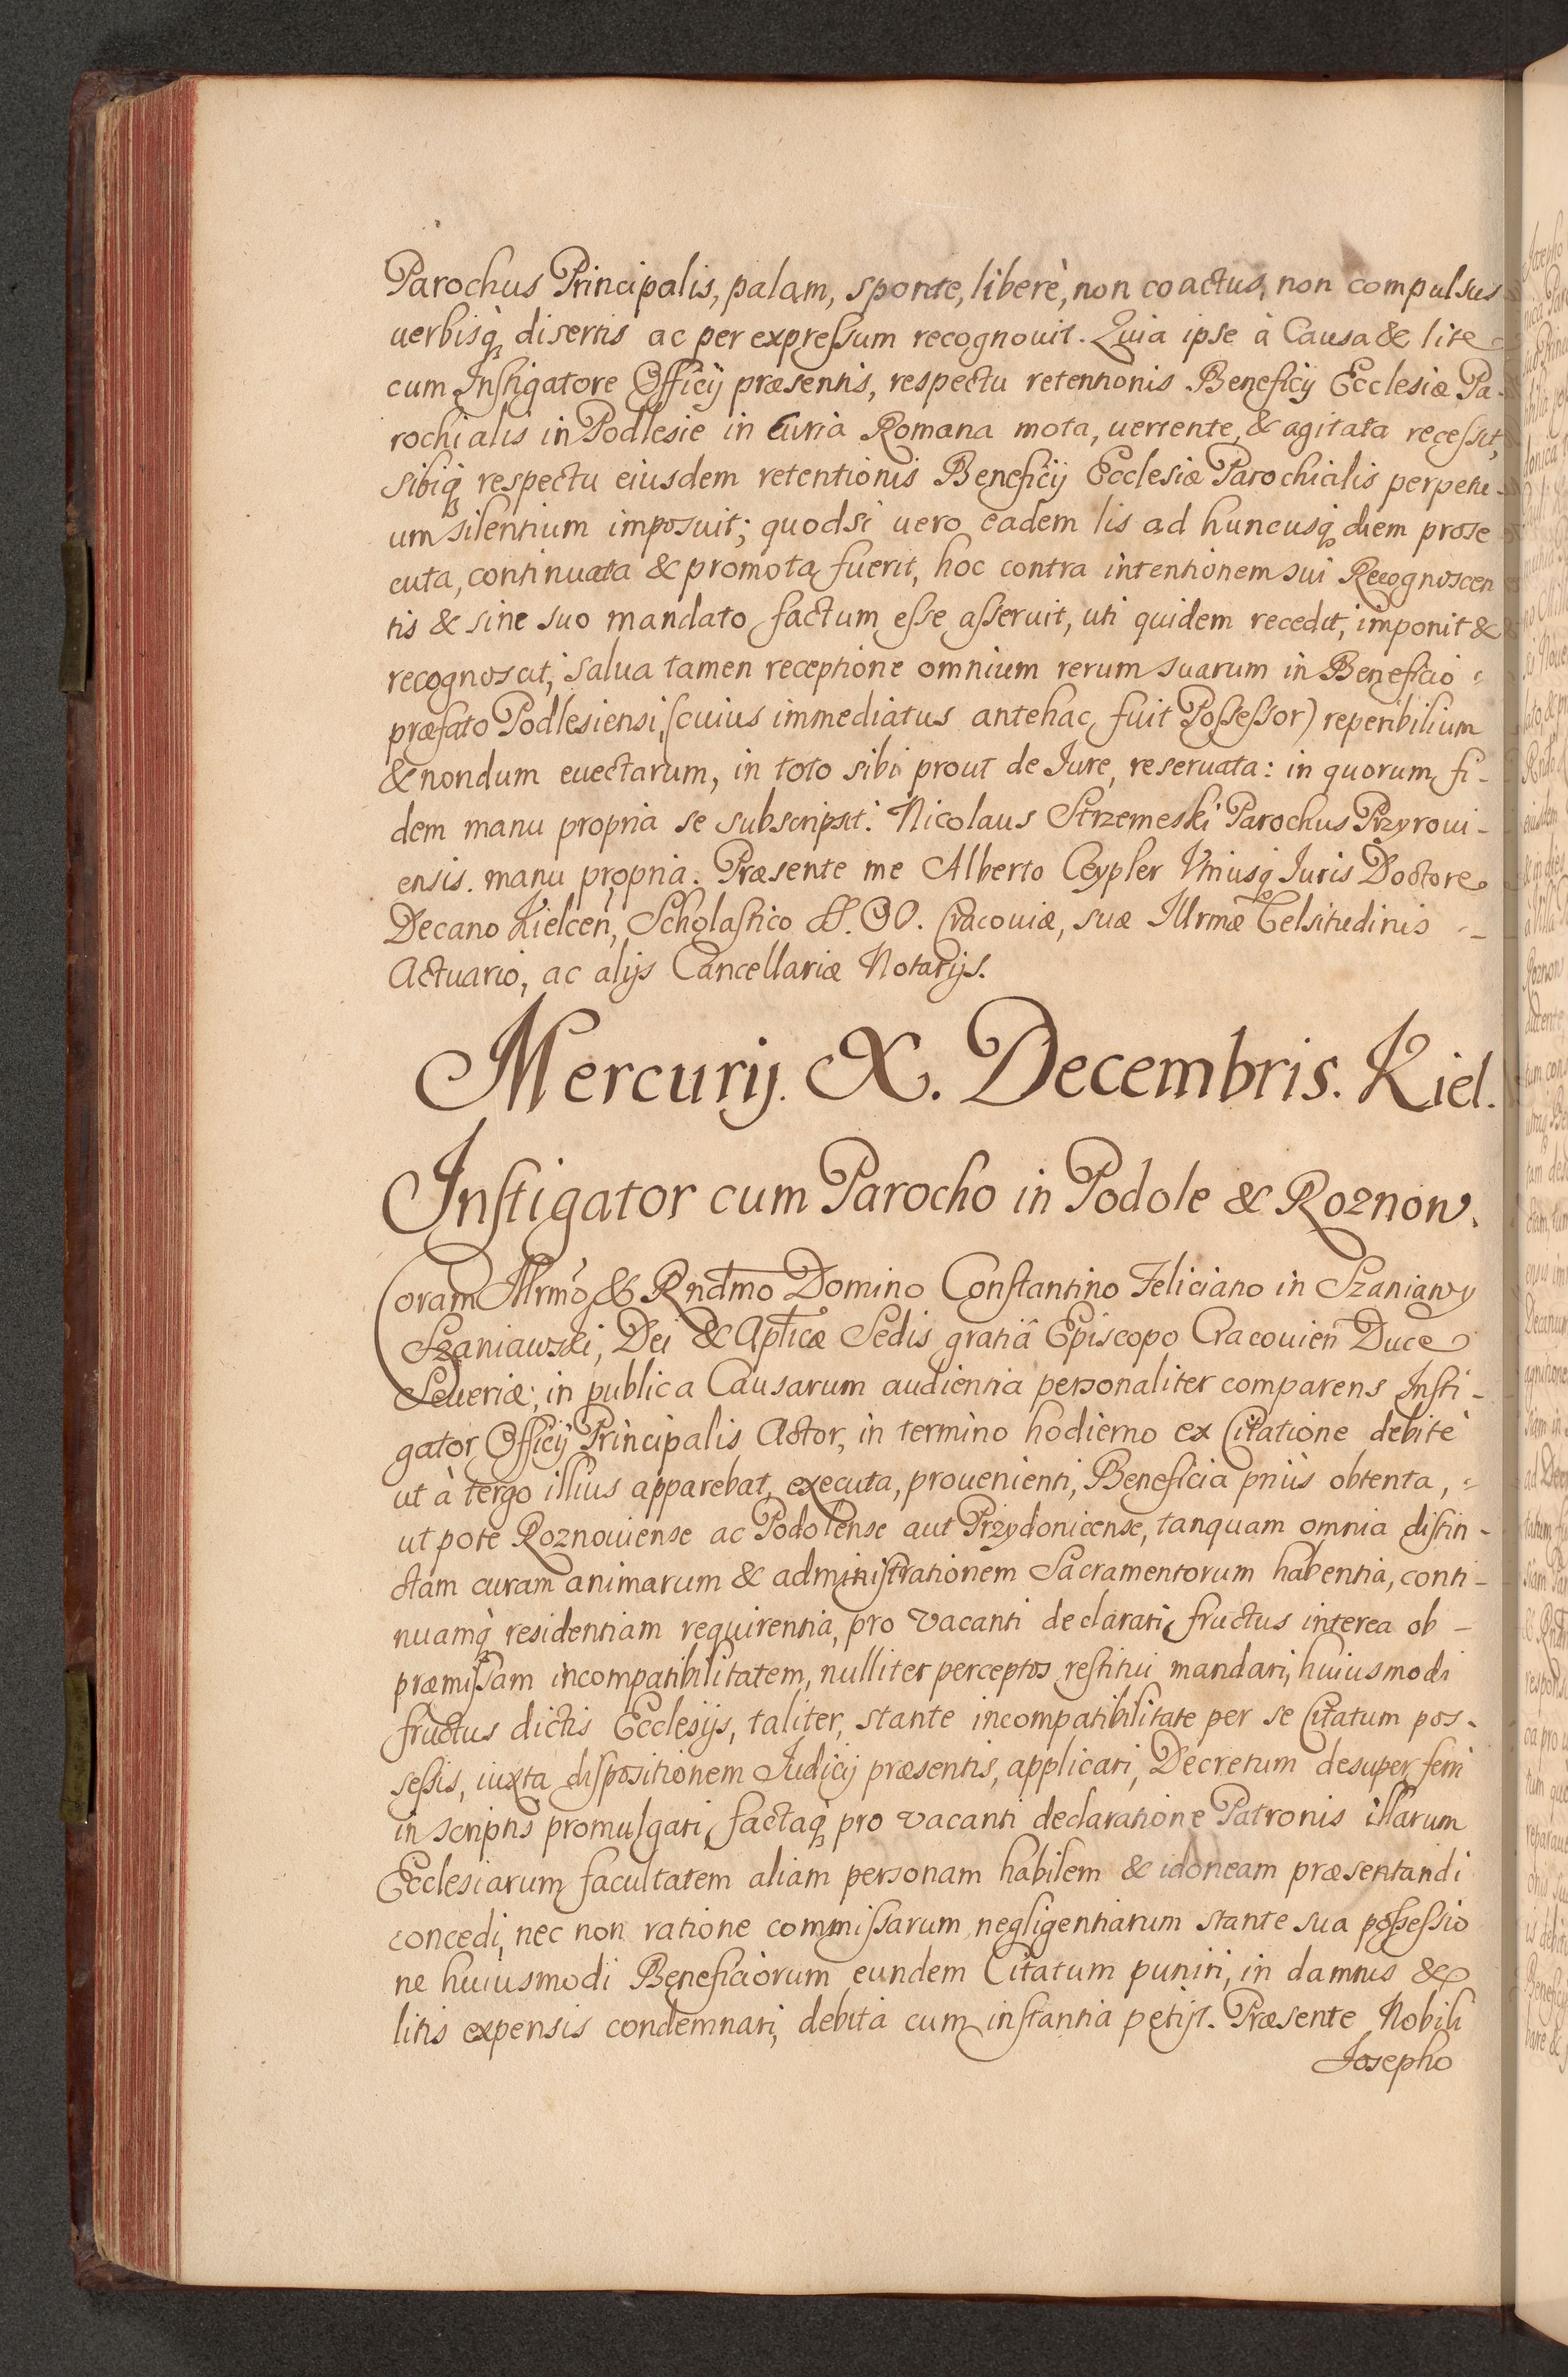 Parochus Principalis, palam, sponte, liberè, non coactus, non compulsus
uerbisq; disertis ac per expreſsum recognouit. Quia ipse à Causa & lite
cum Inſtigatore Officij præsentis, respectu retentionis Beneficij Ecclesiæ Pa-
rochialis in Podlesie in Curia Romana mota, uertente, & agitata receſsit,
sibiq; respectu eiusdem retentionis Beneficij Ecclesiæ Parochialis perpetu-
um silentium imposuit; quodsi uero eadem lis ad huncusq; diem prose
cuta, continuata & promota fuerit, hoc contra intentionem sui Recognoscen
tis & sine suo mandato factum eſse aſseruit, uti quidem recedit, imponit &
recognoscit; salua tamen receptione omnium rerum suarum in Beneficio
præfato Podlesiensi, (cuius immediatus antehac fuit Poſseſsor) reperibilium
& nondum euectarum, in toto sibi prout de Iure, reseruata: in quorum fi-
dem manu propria se subscripsit. Nicolaus Strzemeski Parochus Przyroui-
ensis. manu propria. Præsente me Alberto Ceypler Vtriusq; Iuris Doctore
Decano Kielceñ, Scholaſtico SS. OO. Cracouiæ, suæ Illrmæ Celsitudinis
Actuario, ac alijs Cancellariæ Notarijs.
Mercurij. X. Decembris. Kiel.
Inſtigator cum Parocho in Podole & Roznow.
Coram Illrmo & Rndmo Domino Conſtantino Feliciano in Szaniawy
Szaniawski, Dei & Apticæ Sedis gratiâ Episcopo Cracouieñ Duce
Seueriæ; in publica Causarum audientia personaliter comparens Inſti-
gator Officij Principalis Actor, in termino hodierno ex Citatione debitè
ut à tergo illius apparebat, executa, prouenienti, Beneficia priùs obtenta,
ut pote Roznouiense ac Podolense aut Przydonicense, tanquam omnia diſtin-
ctam curam animarum & adminiſtrationem Sacramentorum habentia, conti-
nuamq; residentiam requirentia, pro vacanti declarari, fructus interea ob-
præmiſsam incompatibilitatem, nulliter perceptos reſtitui mandari, huiusmodi
fructus dictis Ecclesijs, taliter, stante incompatibilitate per se Citatum pos-
seſsis, iuxta diſpositionem Iudicij præsentis, applicari, Decretum desuper ferri
in scriptis promulgari, factaq; pro vacanti declaratione Patronis illarum
Ecclesiarum facultatem aliam personam habilem & idoneam præsentandi
concedi, nec non ratione commiſsarum negligentiarum stante sua poſseſsio
ne huiusmodi Beneficiorum eundem Citatum puniri, in damnis &
litis expensis condemnari, debita cum inſtantia petijt. Præsente Nobili
Josepho